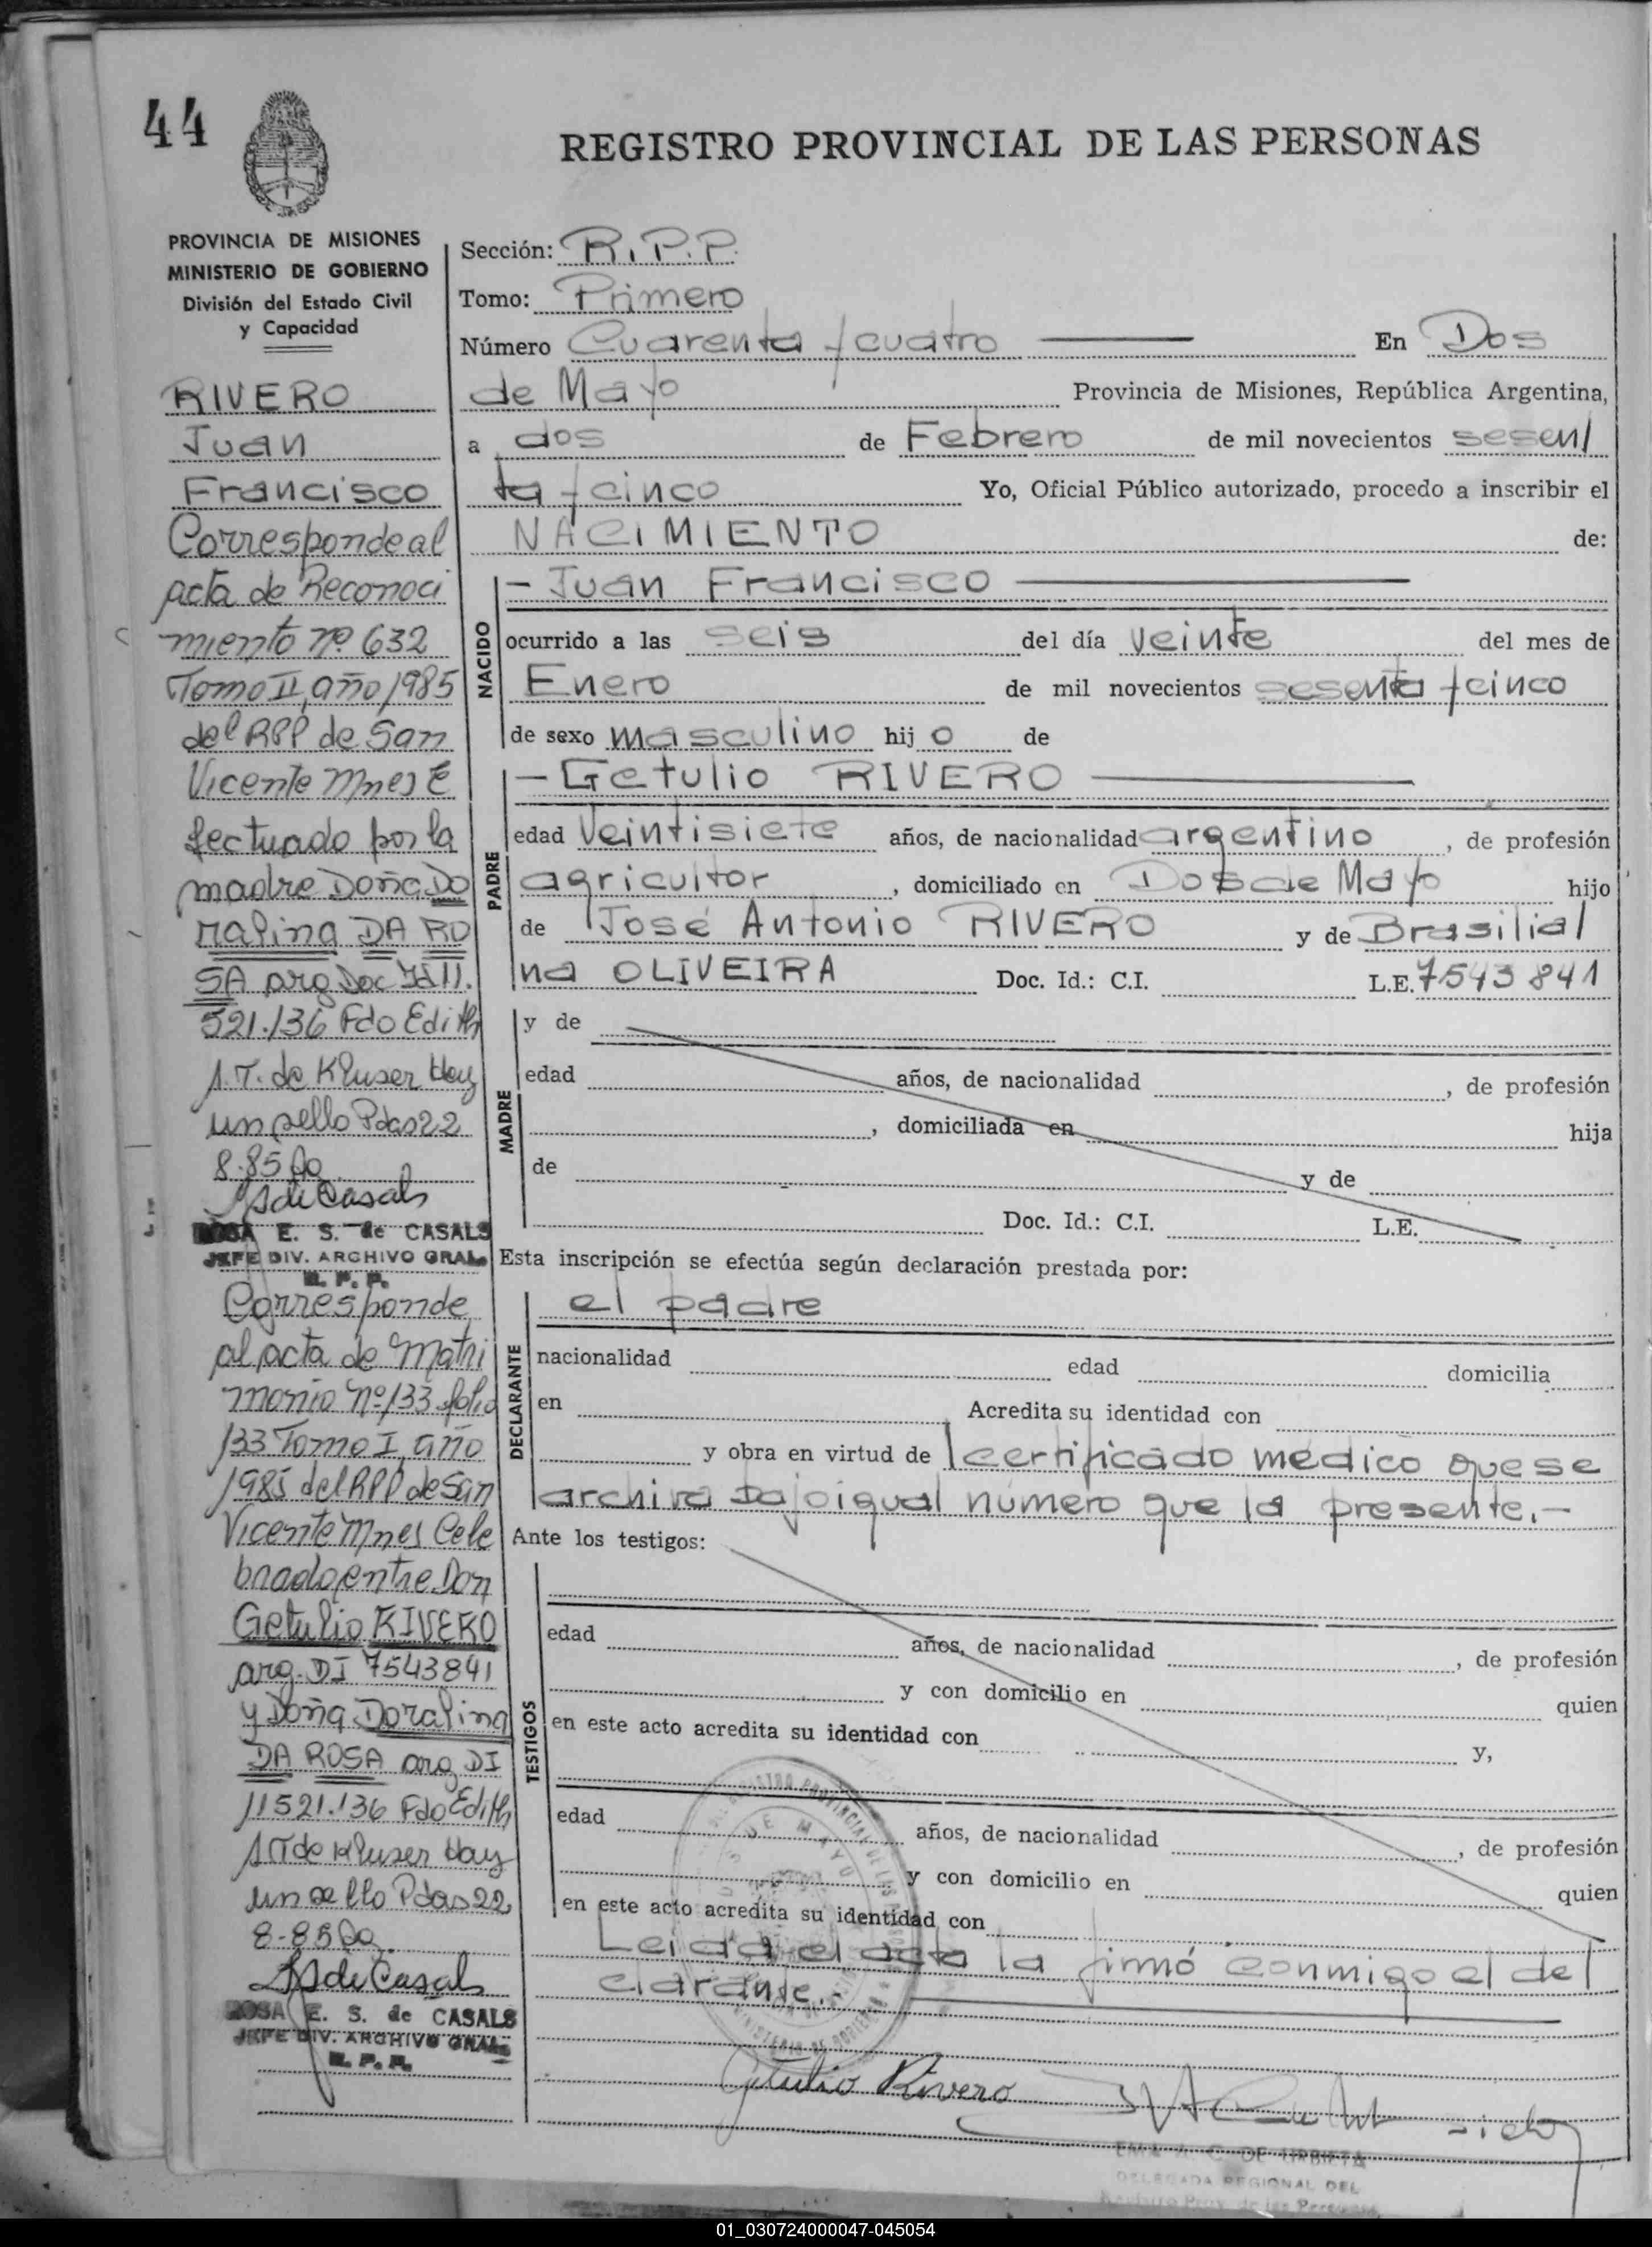 44
REGISTRO PROVINCIAL DE LAS PERSONAS
PROVINCIA DE MISIONES
MINISTERIO DE GOBIERNO
División del Estado Civil
y Capacidad
RIVERO
Juan
Francisco
Corresponde al
acta de Reconoci
miento nº 632
Tomo II, año 1985
del RPP de San
Vicente Mnes E
fectuado por la
madre Doña Do
ralina DA RO
SA arg Doc Id 11.
521.136 Fdo Edith
A.T. de Kluser Hay
un sello Pdas 22
8.85
ASdeCasals
ROSA E. S. de CASALS
JEFE DIV. ARCHIVO GRAL.
R. P. P.
Corresponde
al acta de Matri
monio Nº 133 folio
133 Tomo I, año
1985 del RPP de San
Vicente Mnes Cele
brado entre Don
Getulio RIVERO
arg. DI 7543841
y Doña Doralina
DA ROSA arg DI
11521.136 Fdo Edith
A T de Kluser Hay
un sello Pdas 22
8-85
ASdeCasals
ROSA E. S. de CASALS
JEFE DIV. ARCHIVO GRAL.
R. P. P.
Sección: R.P.P.
Tomo: Primero
Número Cuarenta y cuatro En Dos
de Mayo Provincia de Misiones, República Argentina,
a dos de Febrero de mil novecientos sesen/
ta y cinco Yo, Oficial Público autorizado, procedo a inscribir el
NACIMIENTO de:
NACIDO
- Juan Francisco
ocurrido a las seis del día veinte del mes de
Enero de mil novecientos sesenta y cinco
de sexo masculino hijo de
PADRE
- Getulio RIVERO
edad veintisiete años, de nacionalidad argentino, de profesión
agricultor, domiciliado en Dos de Mayo hijo
de José Antonio RIVERO y de Brasilia/
na OLIVEIRA Doc. Id.: C.I. L.E. 7543841
MADRE
y de
edad años, de nacionalidad , de profesión
, domiciliada en hija
de y de
Doc. Id.: C.I. L.E.
Esta inscripción se efectúa según declaración prestada por:
DECLARANTE
el padre
nacionalidad edad domicilia
en Acredita su identidad con
y obra en virtud de certificado médico que se
archiva bajo igual número que la presente.-
Ante los testigos:
TESTIGOS
edad años, de nacionalidad , de profesión
y con domicilio en quien
en este acto acredita su identidad con y,
edad años, de nacionalidad , de profesión
y con domicilio en quien
en este acto acredita su identidad con
Leida el acta la firmó conmigo el de/
clarante.-
Getulio Rivero
EMA A. C. DE URBIETA
DELEGADA REGIONAL DEL
Registro Prov. de las Personas
01_030724000047-045054